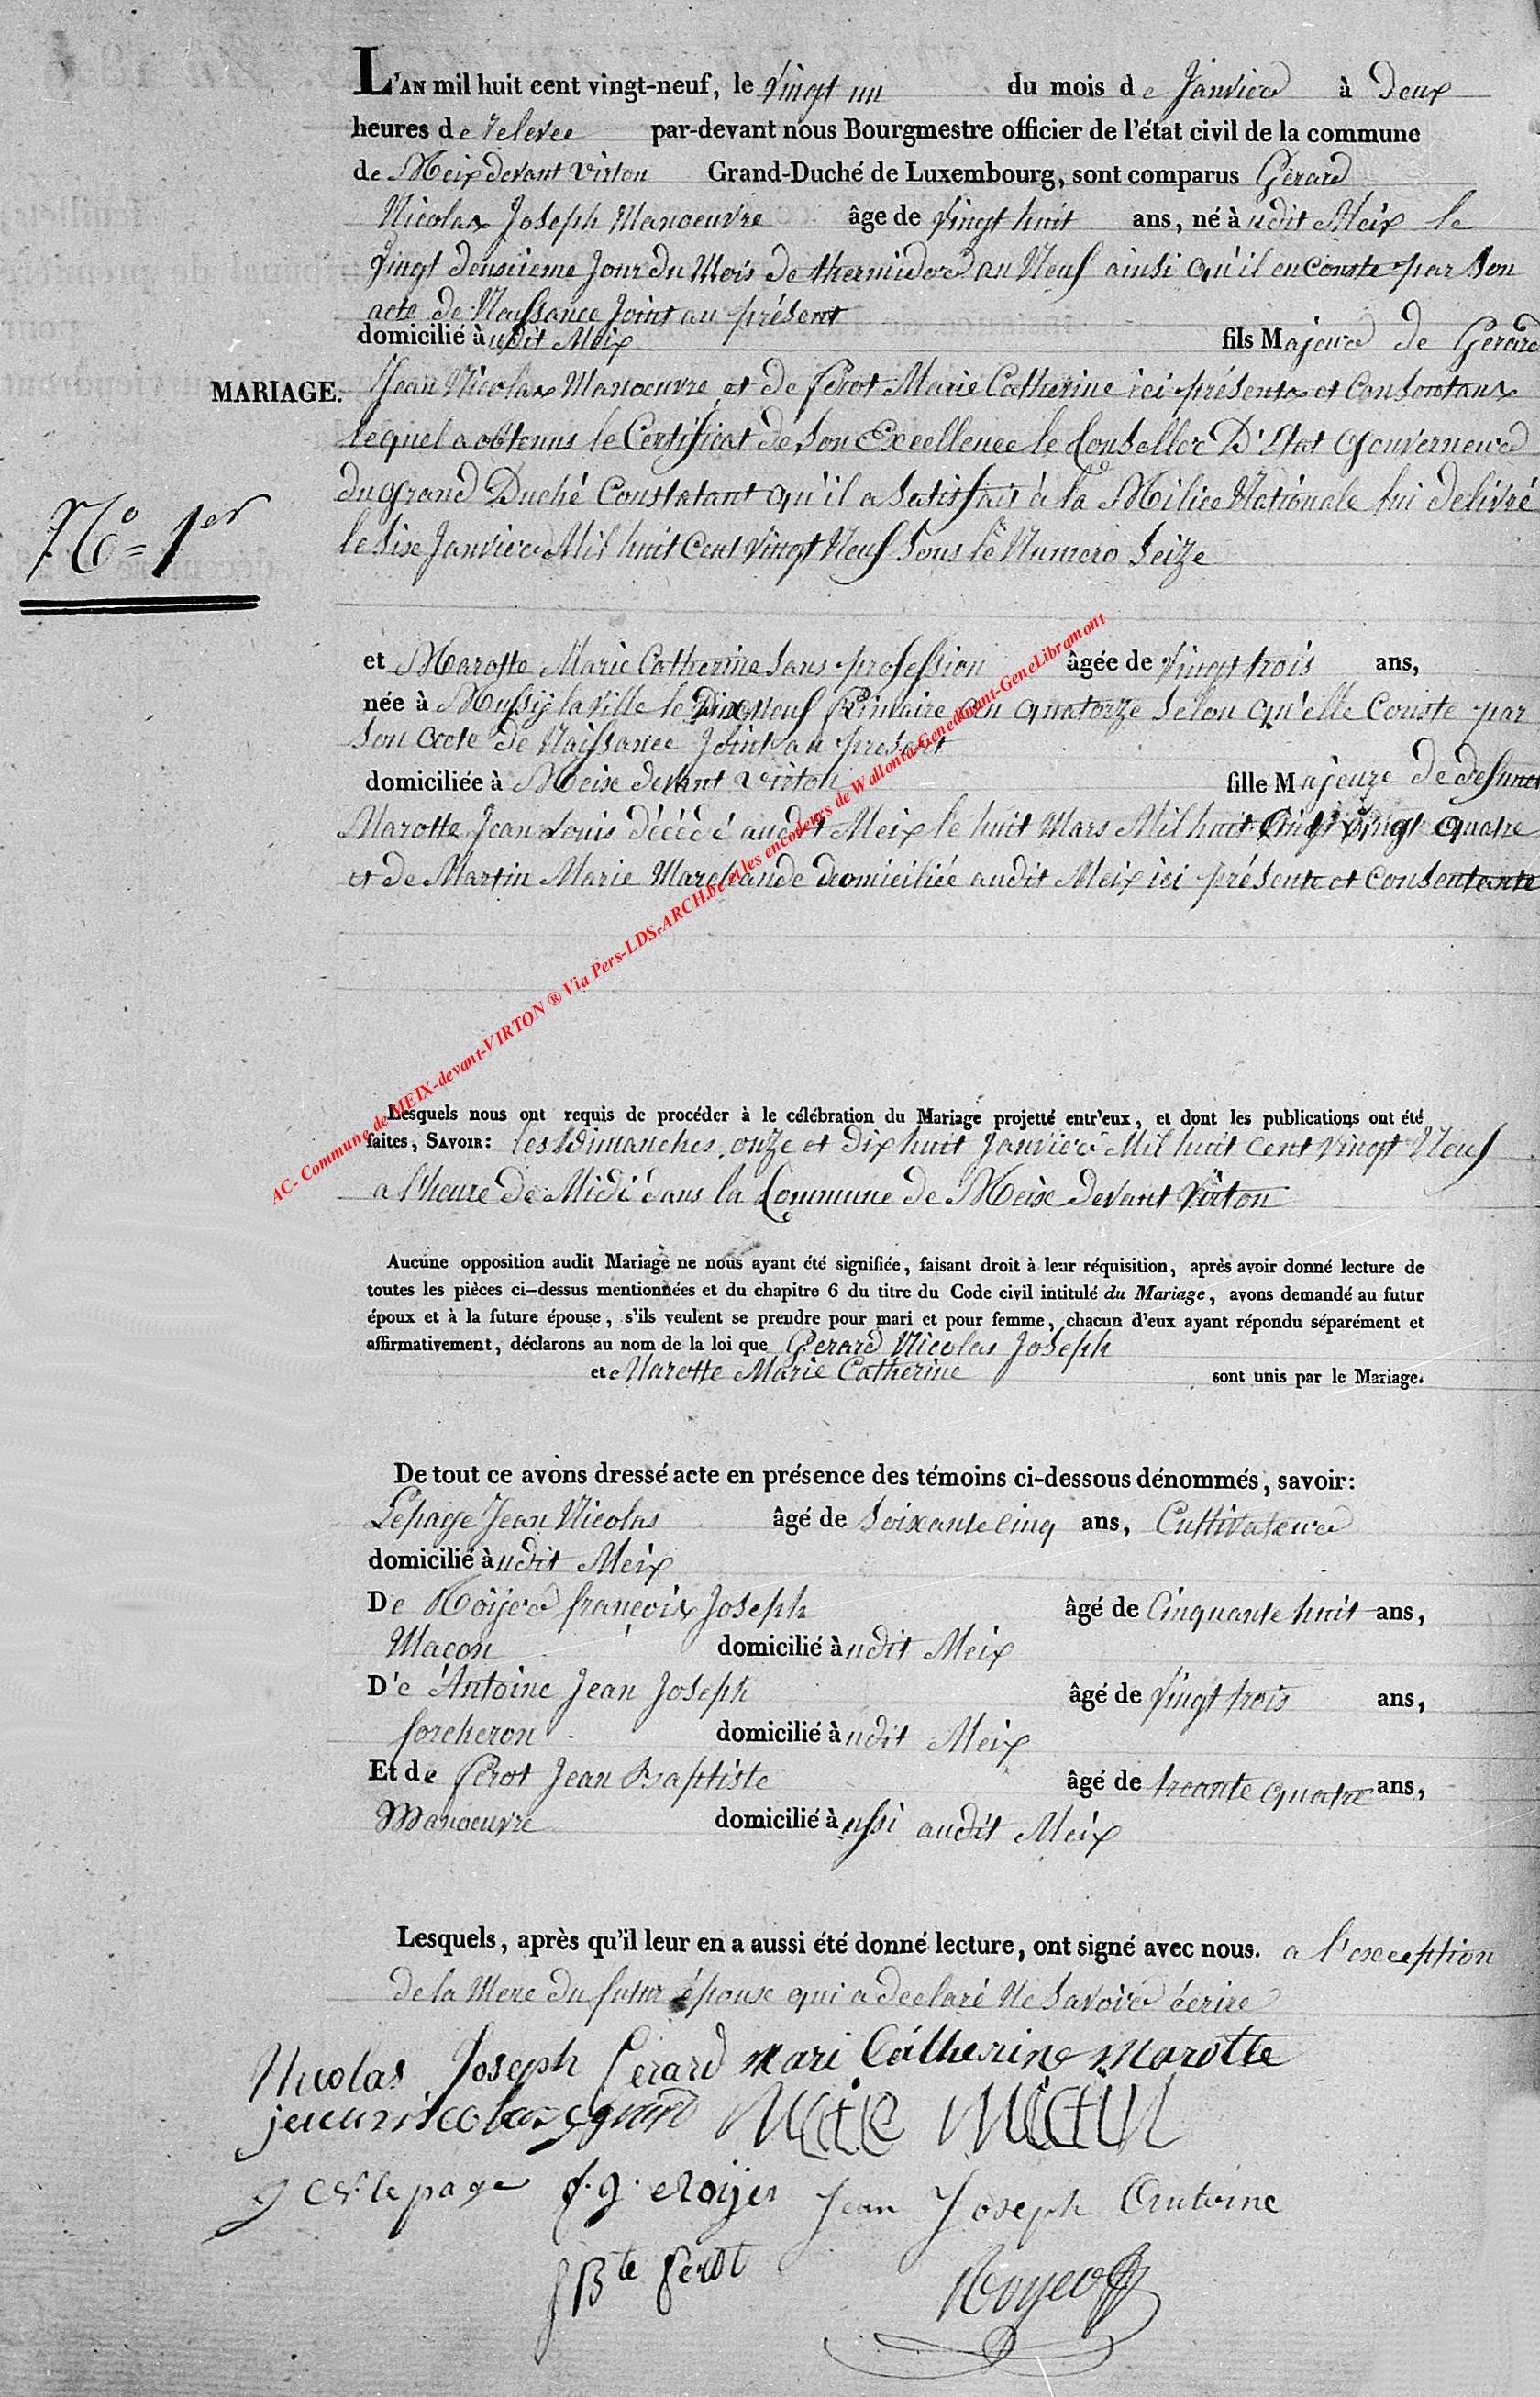 L'AN mil huit cent vingt-neuf, le vingt un du mois de Janvier à deux
heures de relevee par-devant nous Bourgmestre officier de l'état civil de la commune
de Meix devant Virton Grand-Duché de Luxembourg, sont comparus Gérard
Nicolas Joseph Manoeuvre âge de vingt huit ans, né àudit Meix le
vingt deuxieme jour du Mois de thermidor an Neuf ainsi qu'il en conste par son
acte de Naissance Joint au présent
domicilié àudit Meix fils Majeur de Gerard
MARIAGE.
Jean Nicolas Manoeuvre et de ferot Marie Catherine ici présents et Consentans
lequel a obtenus le Certificat de Son Excellence le Conseller D'Etat Gouverneur
du Grand Duché Constatant qu'il a Satisfait à la Milice Nationale lui delivré
N° 1er
le Six Janvier Mil huit Cent vingt Neuf Sous le Numero Seize
et Marotte Marie Catherine Sans profession âgée de vingt trois ans,
née à Mussÿ la Ville le Dix Neuf frimaire an quatorze Selon qu'elle Conste par
Son acte de Naissance Joint au present
domiciliée à Meix devant Virton fille Majeure de defunct
Marotte Jean Louis décédé audit Meix le huit Mars Mil huit Cent vingt quatre
et de Martin Marie Marchande domiciliée audit Meix ici présente et Consentante
AC- Commune de MEIX-devant-VIRTON ® Via Pers-LDS-ARCH.be et les encodeurs de Wallonia-Genedinant-GeneLibramont
Lesquels nous ont requis de procéder à le célébration du Mariage projetté entr'eux, et dont les publications ont été
faites, SAVOIR: les Dimanches onze et Dix huit Janvier Mil huit Cent vingt Neuf
a l'heure de Midi dans la Commune de Meix devant Virton
Aucune opposition audit Mariage ne nous ayant été signifiée, faisant droit à leur réquisition, après avoir donné lecture de
toutes les pièces ci-dessus mentionnées et du chapitre 6 du titre du Code civil intitulé du Mariage, avons demandé au futur
époux et à la future épouse, s'ils veulent se prendre pour mari et pour femme, chacun d'eux ayant répondu séparément et
affirmativement, déclarons au nom de la loi que Gerard Nicolas Joseph
et Marotte Marie Catherine sont unis par le Mariage.
De tout ce avons dressé acte en présence des témoins ci-dessous dénommés, savoir:
Lepage Jean Nicolas âgé de Soixante cinq ans, Cultivateur
domicilié àudit Meix
De Roÿer françois Joseph âgé de Cinquante huit ans,
Maçon domicilié àudit Meix
D'e Antoine Jean Joseph âgé de vingt trois ans,
forcheron domicilié àudit Meix
Et de ferot Jean Baptiste âgé de treante quatre ans,
Manoeuvre domicilié àussi audit Meix
Lesquels, après qu'il leur en a aussi été donné lecture, ont signé avec nous. a l'exception
de la Mere du futur épouse qui a declaré Ne Savoir écrire
Nicolas Joseph Gerard Mari Catherine Marotte
jean nicolas gerard
J N lepage f. J. Roÿer Jean Joseph Antoine
J Bte ferot Royer